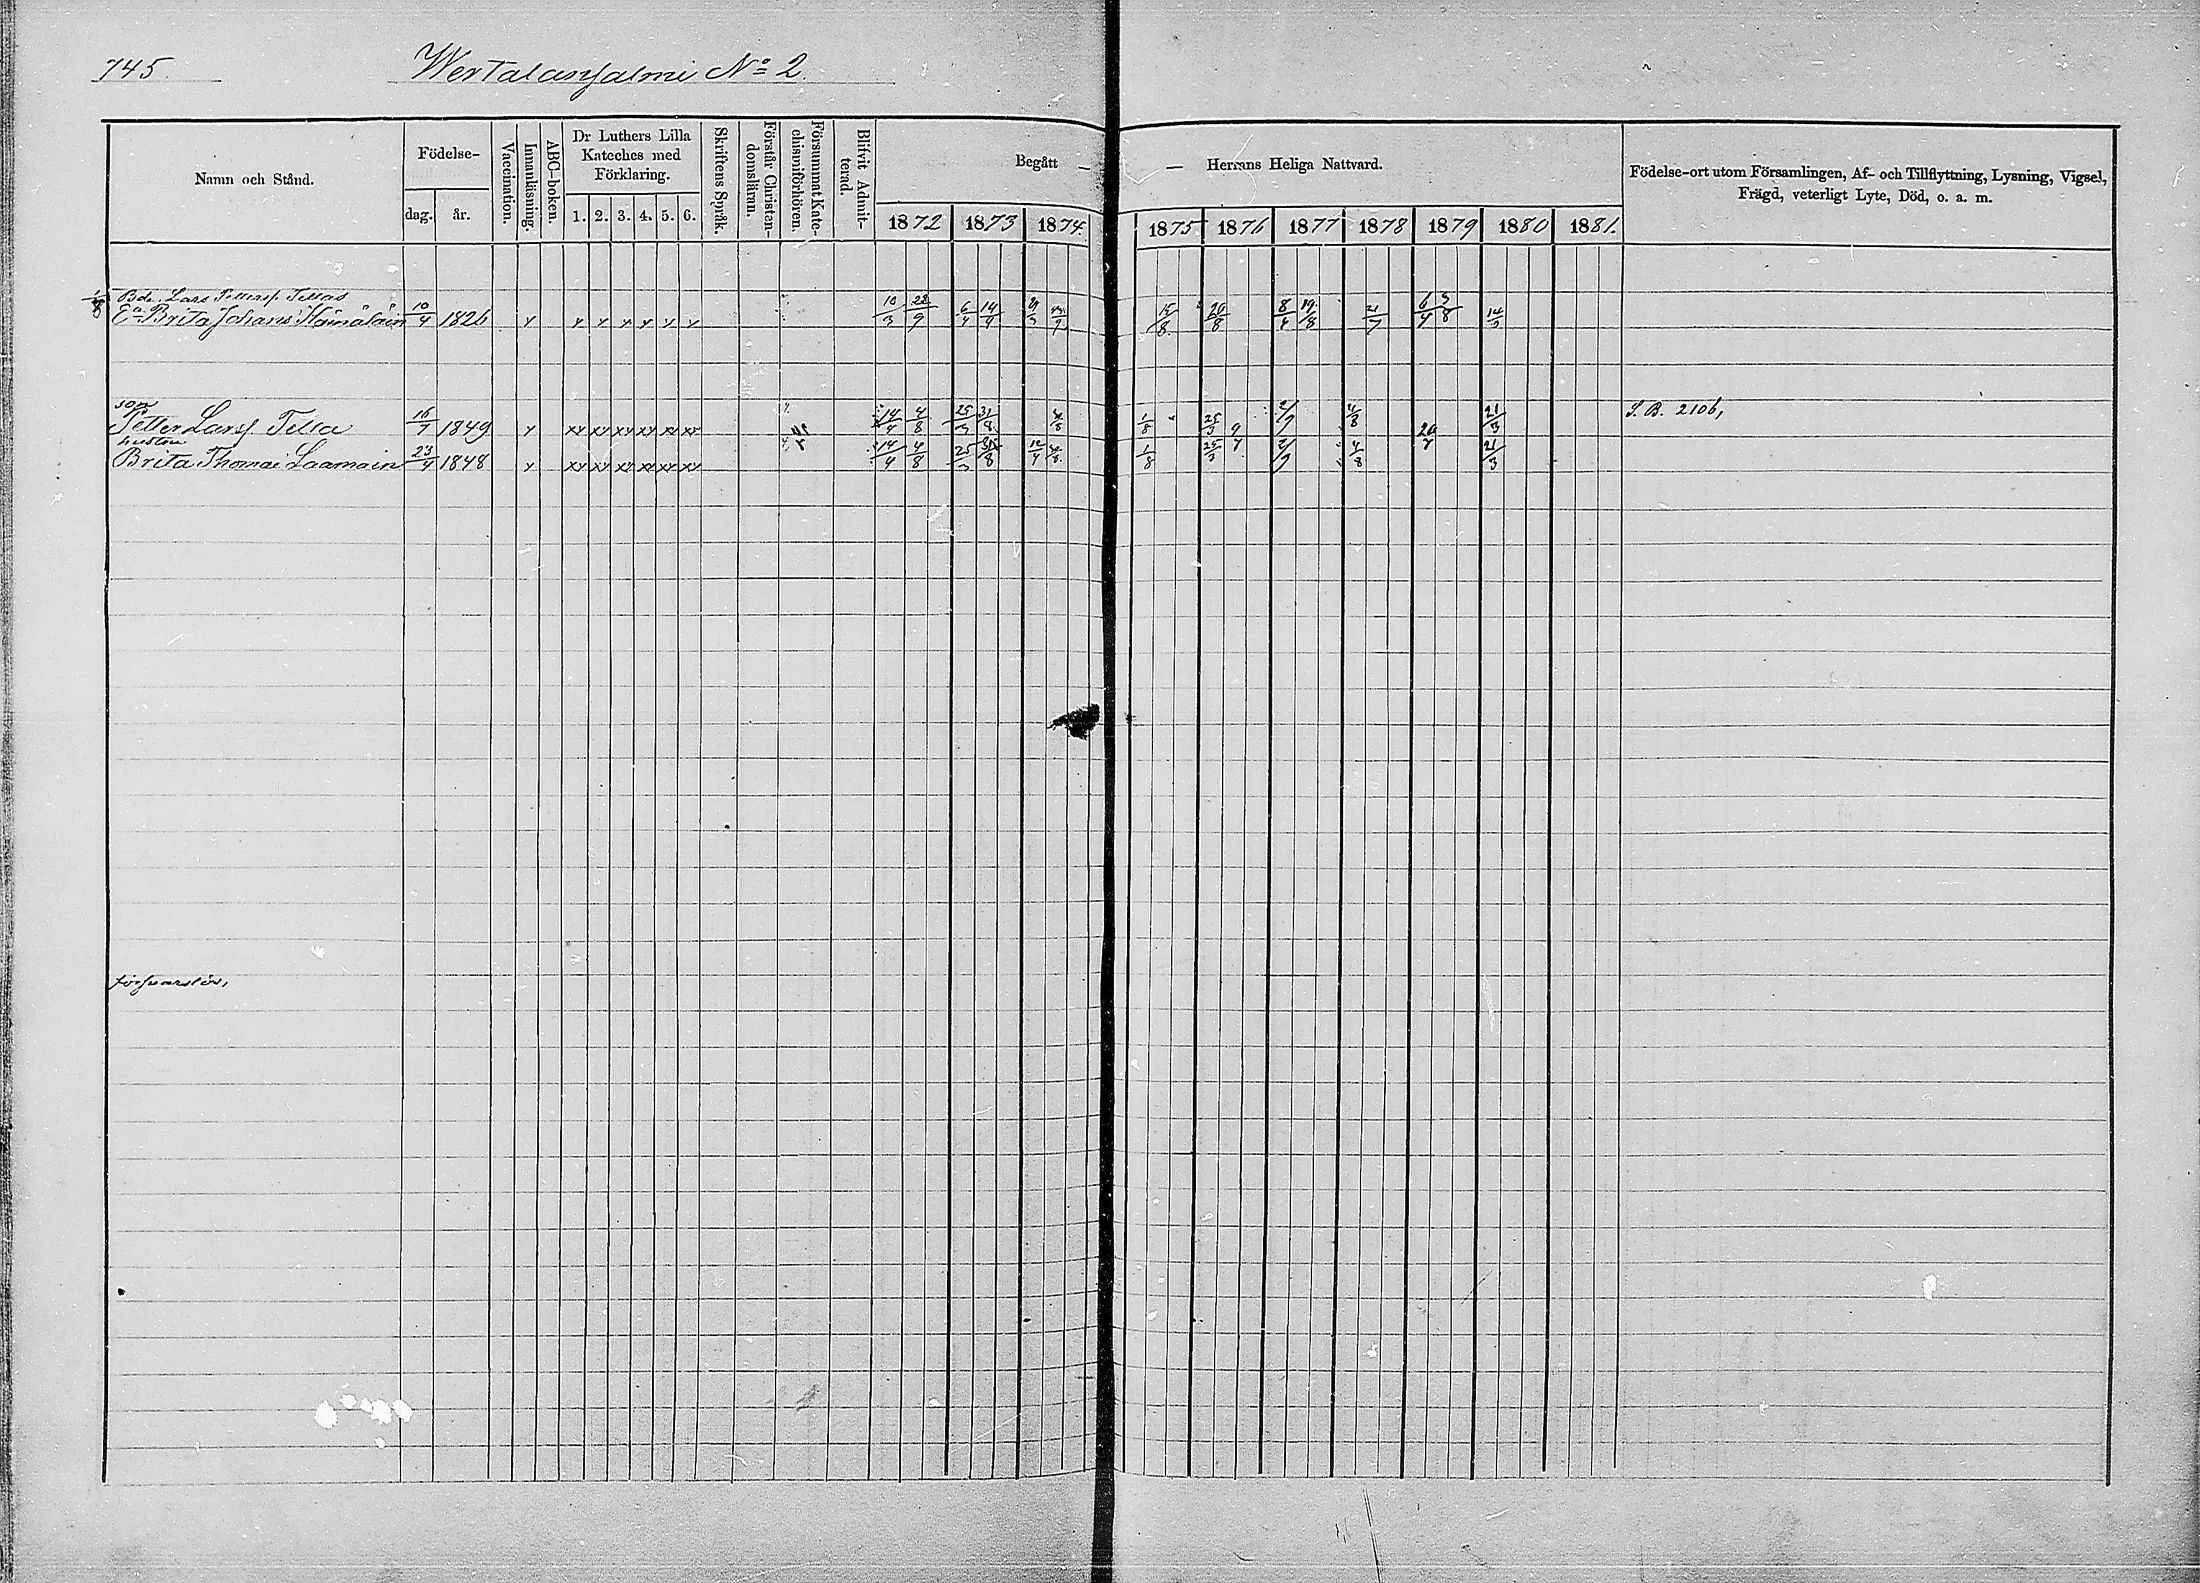 745.
Wertalansalmi No 2.
Namn och Stånd.
Födelse-
dag. år.
Vaccination.
Innanläsning.
ABC-boken.
Dr Luthers Lilla
Kateches med
Förklaring.
1. 2. 3. 4. 5. 6.
Skriftens Språk.
Förstår Christen-
domsläran.
Försummat Kate-
chismiförhören.
Blifvit Admit-
terad.
Begått —
— Herrans Heliga Nattvard.
1872 1873 1874. 1875 1876 1877 1878 1879 1880 1881.
Födelse-ort utom Församlingen, Af- och Tillflyttning, Lysning, Vigsel,
Frägd, veterligt Lyte, Död, o. a. m.
Bde. Lars Petters. Tellas
Ea Brita Johans Hämäläin 10/4 1826 10/3 22/9 6/4 14/9 15/8 20/8 8/4 19/8 21/7 6/4 3/8 14/3
son
Petter Larss. Tella 16/7 1849 14/4 4/8 25/3 31/8 1/8 25/3 2/9 4/8 21/3 S. B. 2106,
hustru
Brita Thomae Laamain 23/4 1848 14/4 4/8 25/3 31/8 12/4 1/8 25/3 2/9 4/8 20/7 21/3
försvarslös,